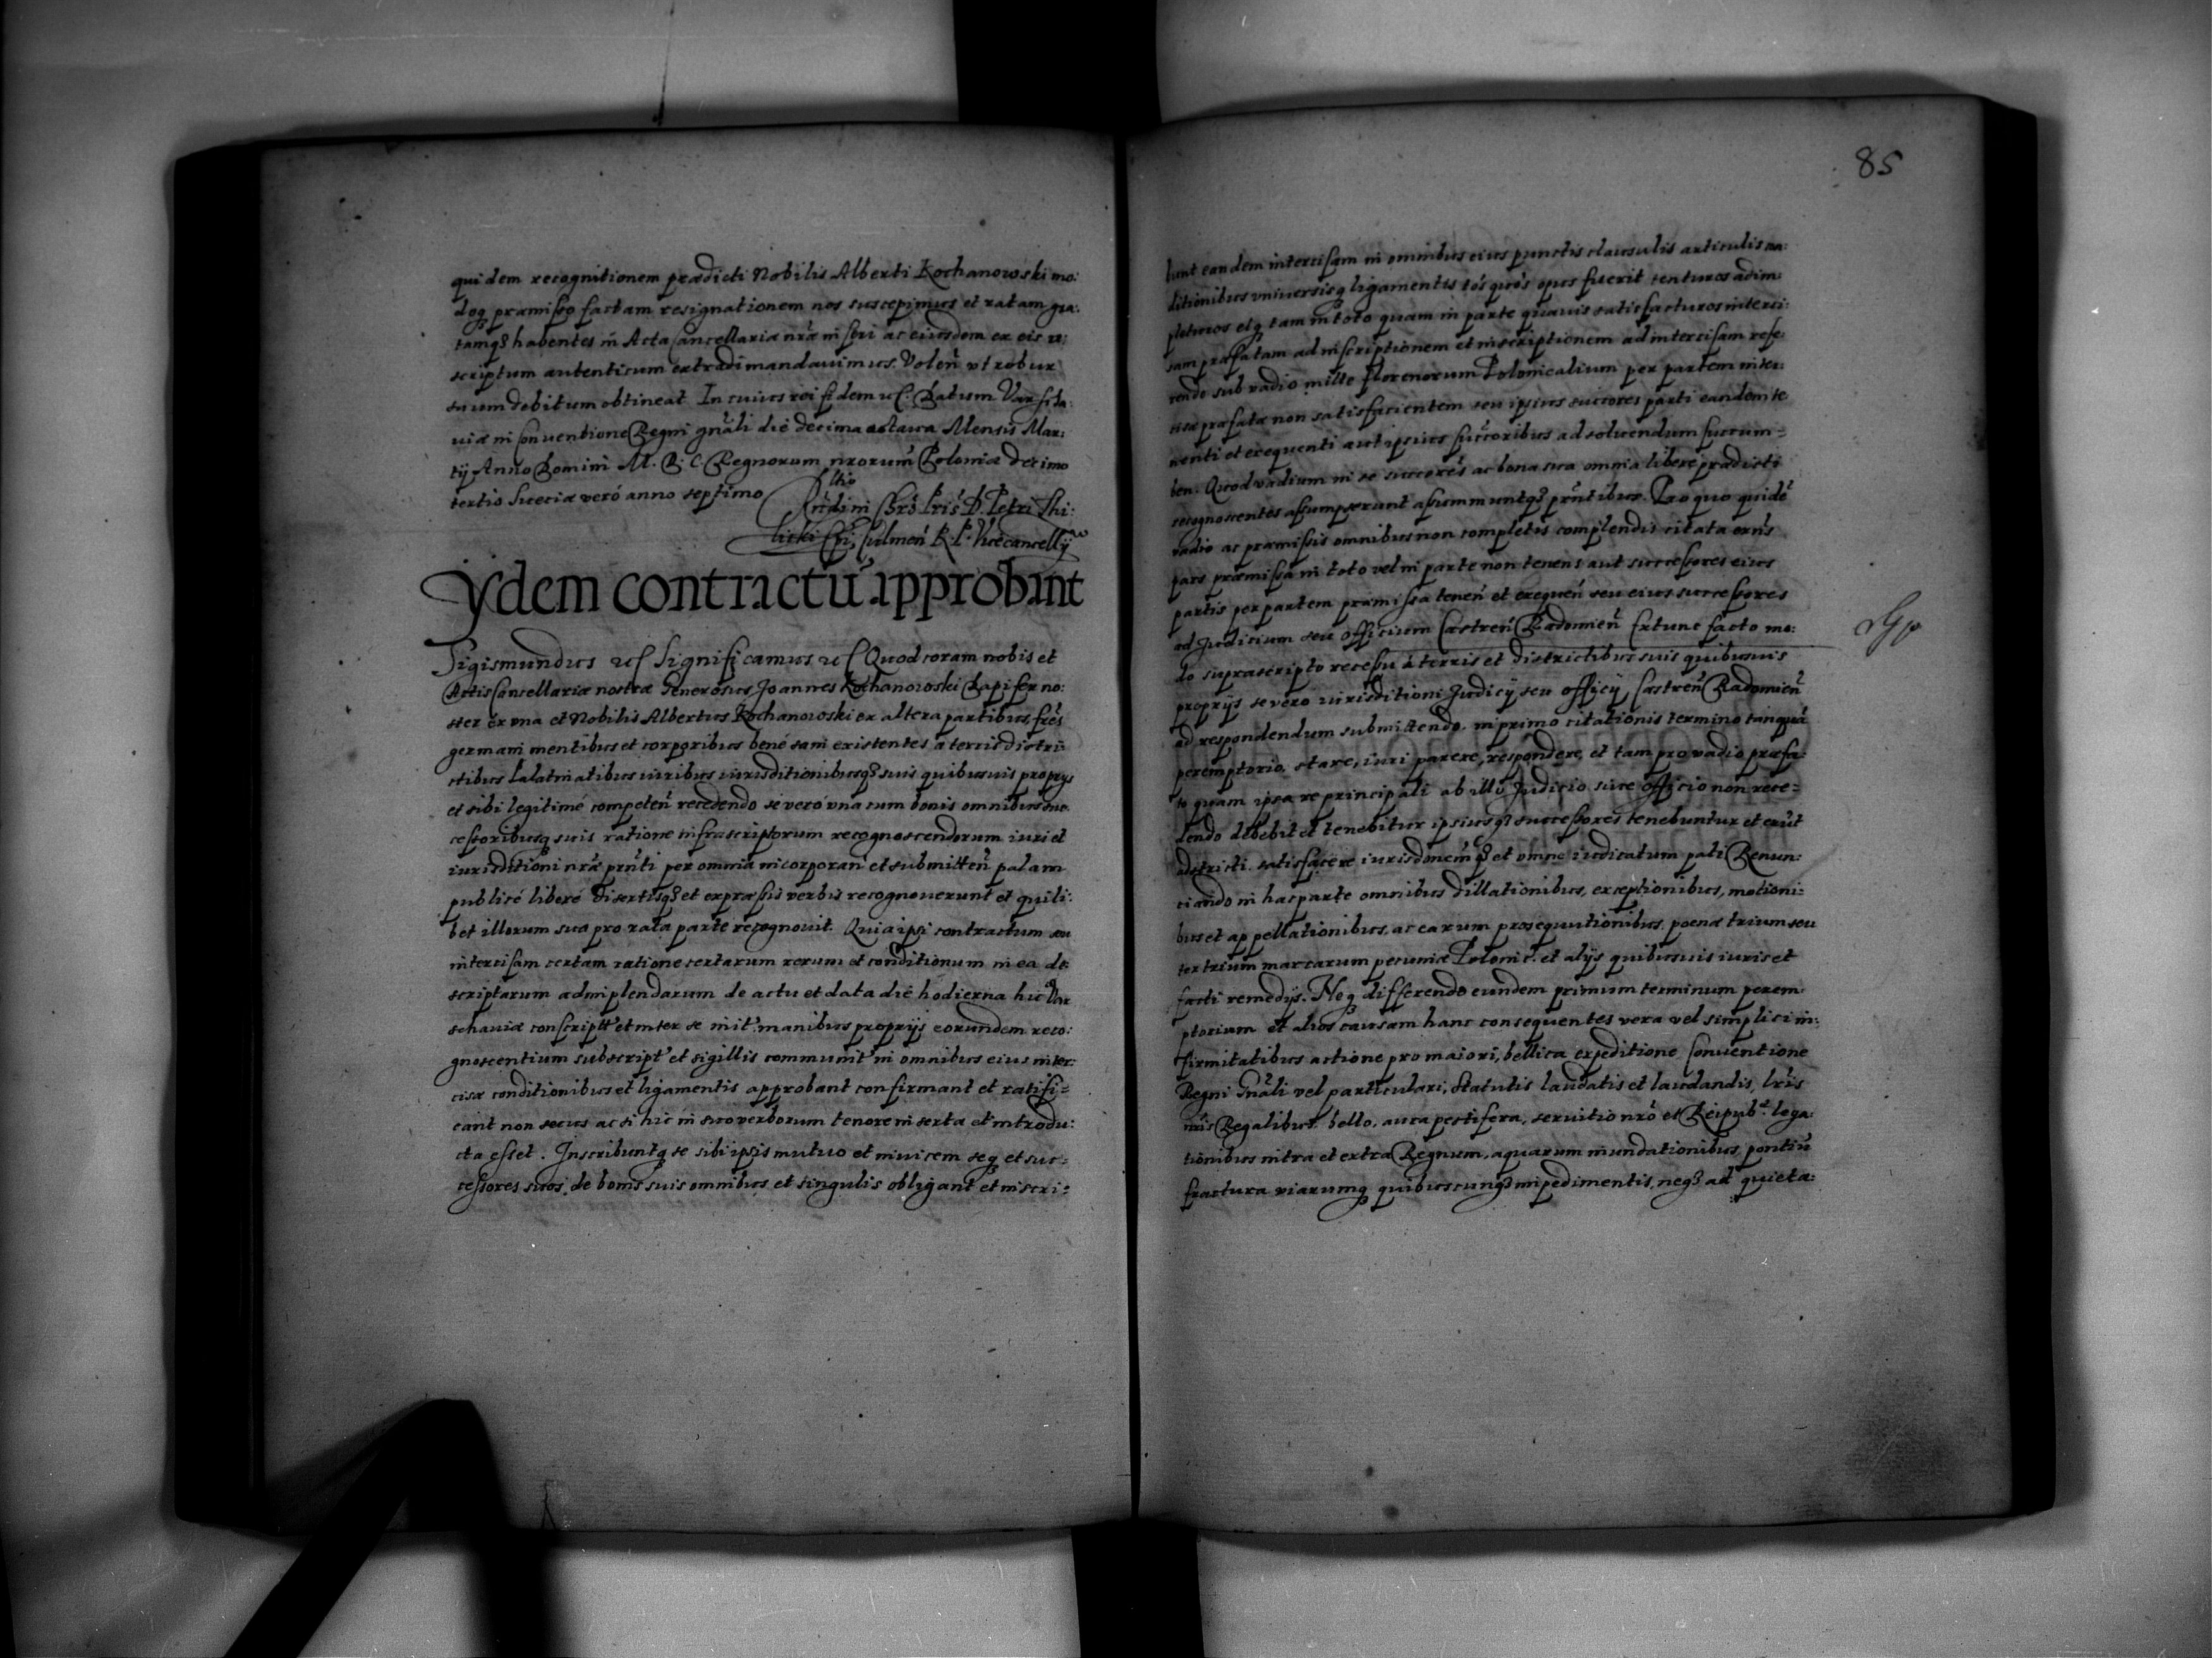 quidem recognitionem prædicti Nobilis Alberti Kochanowski mo:
doq præmisso factam resignationem nos suscepimus et ratam gra:
tamq3 habentes in Acta Cancellariæ nrǽ inscri ac eiusdem ex eis re:
scriptum autenticum extradi mandauimus. Volen̄ vt robur
suum debitum obtineat In cuius rei fidem uc. Datum Varscha:
uiæ in Conuentione Regni gnāli die decima octaua Mensis Mar:
tij Anno Domini M. D. C. Regnorum nrorum Poloniæ decimo
tertio Sueciæ veró anno septimo
Rndi in Chrō Pris D. Petri Thi:
licki Epi Culmen̄ R. P. Vicecancellij
Ydem contractū approbant
Sigismundus uc Significamus uc Quod coram nobis et
Actis Cancellariæ nostræ Generosus Joannes Kochanowski Dapifer no:
ster ex vna et Nobilis Albertus Kochanowski ex altera partibus, frēs
germani mentibus et corporibus bené sani existentes a terris distri
ctibus Palatinatibus iuribus iurisditionibusq3 suis quibusuis proprijs
et sibi legitimé competen̄ recedendo se veró vna cum bonis omnibus suc
cessoribusq suis ratione infrascriptorum recognoscendorum iuri et
iurisditioni nrǽ pnti per omnia incorporan̄ et submitten̄ palam
publicé liberé disertisq3 et expressis verbis recognouerunt et quili:
bet illorum sua pro rata parte recognouit. Quia ipsi contractum seu
intercisam certam ratione certarum rerum et conditionum in ea de:
scriptarum adimplendarum de actu et data dié hodierna hic Var
schauiæ conscript et inter se init manibus proprijs eorundem reco:
gnoscentium subscript et sigillis communit in omnibus eius inter:
cisæ conditionibus et ligamentis approbant confirmant et ratifi=
cant non secus ac si hic in suo verborum tenore inserta et introdu:
cta esset. Inscribuntq se sibi ipsis mutuo et inuicem seq et suc=
cessores suos, de bonis suis omnibus et singulis obligant et inscri=
85
bunt eandem intercisam in omnibus eius punctis clausulis articulis con:
ditionibus vniuersisq ligamentis tós quós opus fuerit tenturos adim:
pleturos etq tam in toto quam in parte quauis satisfacturos interci:
sam præfatam ad inscriptionem et inscriptionem ad intercisam refe:
rendo sub vadio mille florenorum Polonicalium per partem inter:
cisæ præfatæ non satisfacientem seu ipsius succores parti eandem te
nenti et exequenti aut ipsius succoribus ad soluendum succum=
ben. Quod vadium in se succorēs ac bona sua omnia liberé prædicti
recognoscentes assumpserunt assummuntq3 prntibus. Pro quo quidē
vadio ac præmissis omnibus non completis complendis citata exns
pars præmissa in toto vel in parte non tenens aut successores eius
partis per partem præmissa tenen̄ et exequen̄ seu eius successores
ad Judicium seu officium Castren̄ Radomien̄ Extunc facto mo:
do suprascripto recessu à terris et districtibus suis quibusuis
proprijs se vero iurisditioni Judicij seu officij, Castren̄ Radomien̄
ad respondendum submittendo. in primo citationis termino tanquā
peremptorio, stare, iuri parere, respondere, et tam pro vadio præfa:
to quam ipsa re principali ab illo Judicio siue officio non rece=
dendo debebit et tenebitur ipsiusq3 successores tenebuntur et erūt
adstricti satisfacere iurisdonemq3 et omne iudicatum pati Renun:
ciando in hac parte omnibus dillationibus, exceptionibus, motioni:
bus et appellationibus, ac earum prosequutionibus, poenæ trium seu
ter trium marcarum pecuniæ Polonic. et alijs quibusuis iuris et
facti remedijs. Neq differendo eundem primum terminum perem:
ptorium et alios causam hanc consequentes vera vel simplici in:
firmitatibus actione pro maiori, bellica expeditione, Conuentione
Regni Gnāli vel particulari, Statutis laudatis et laudandis, lrīs
nrīs Regalibus, bello, aura pestifera, seruitio nrō et Reipub. lega:
tionibus intra et extra Regnum, aquarum inundationibus, pontiū
fractura viarumq quibuscunq3 impedimentis, neq3 ad quieta: